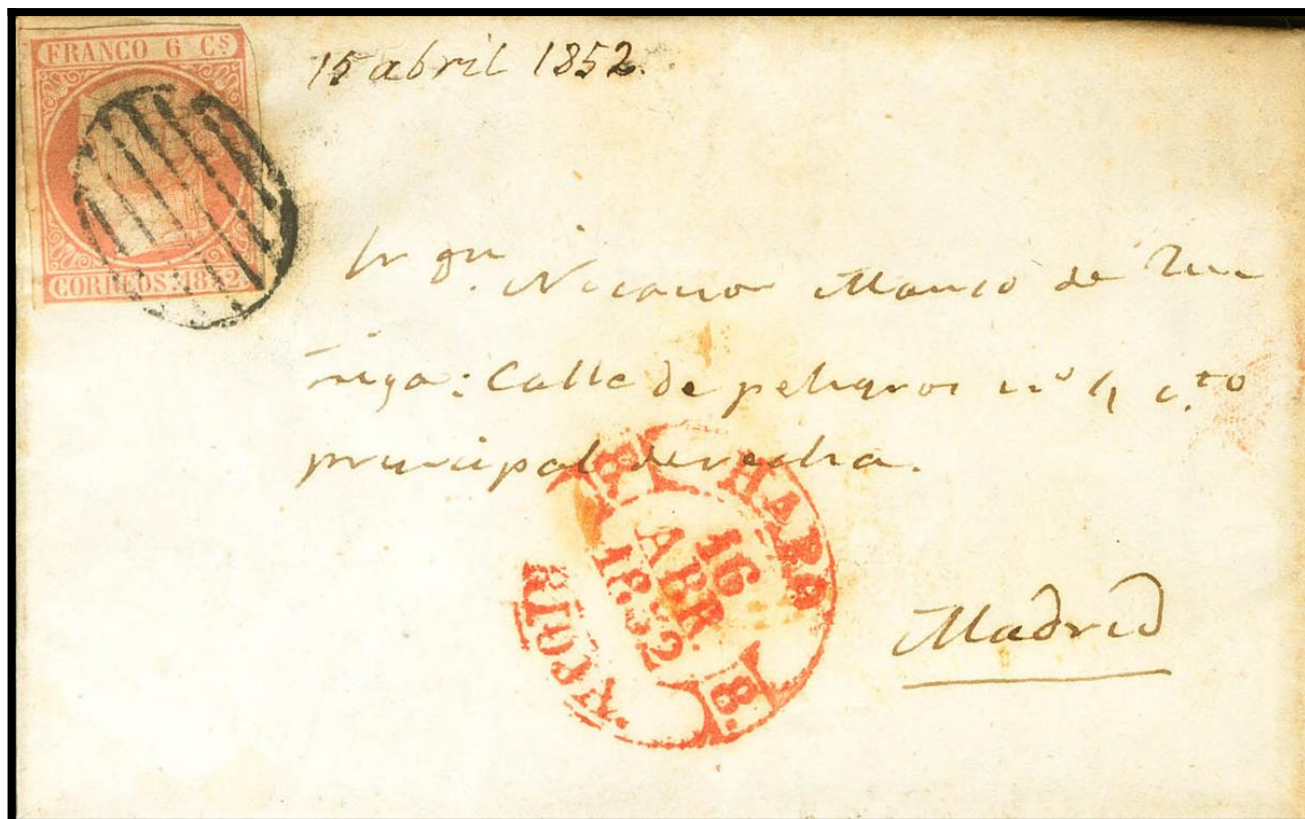 FRANCO 6 Cs
CORREOS 1852
15 abril 1852.
Sr Dn. Nicanor Manso de Zu
ñiga: Calle de peligros nº 4 c.to
principal derecha.
HARO
16
ABR.
1852
8.
RIOJA.
Madrid